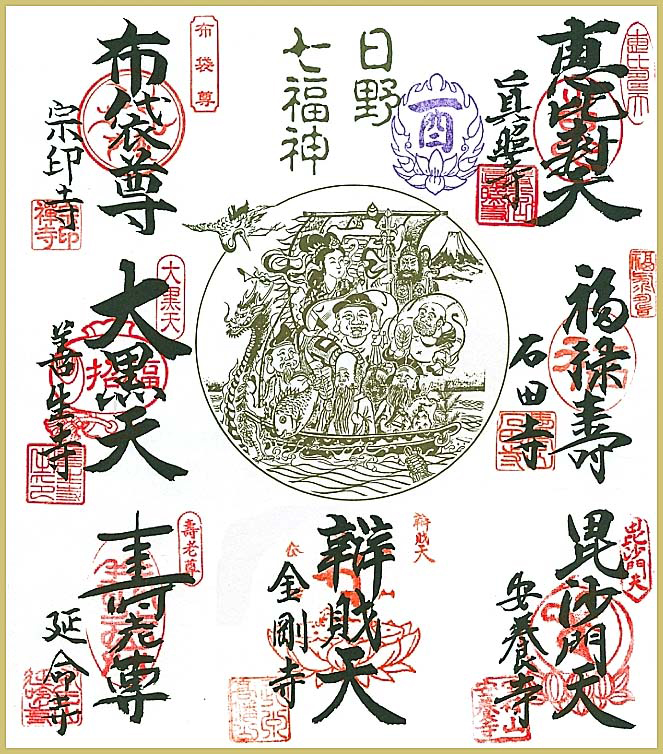 日野
七福神
酉
恵比寿天
眞照寺
福禄寿
福禄寿
石田寺
毘沙門天
毘沙門天
安養寺
辨財天
辨財天
金剛寺
壽老尊
寿老尊
延命寺
大黒天
大黒天
招福
善生寺
布袋尊
布袋尊
宗印寺